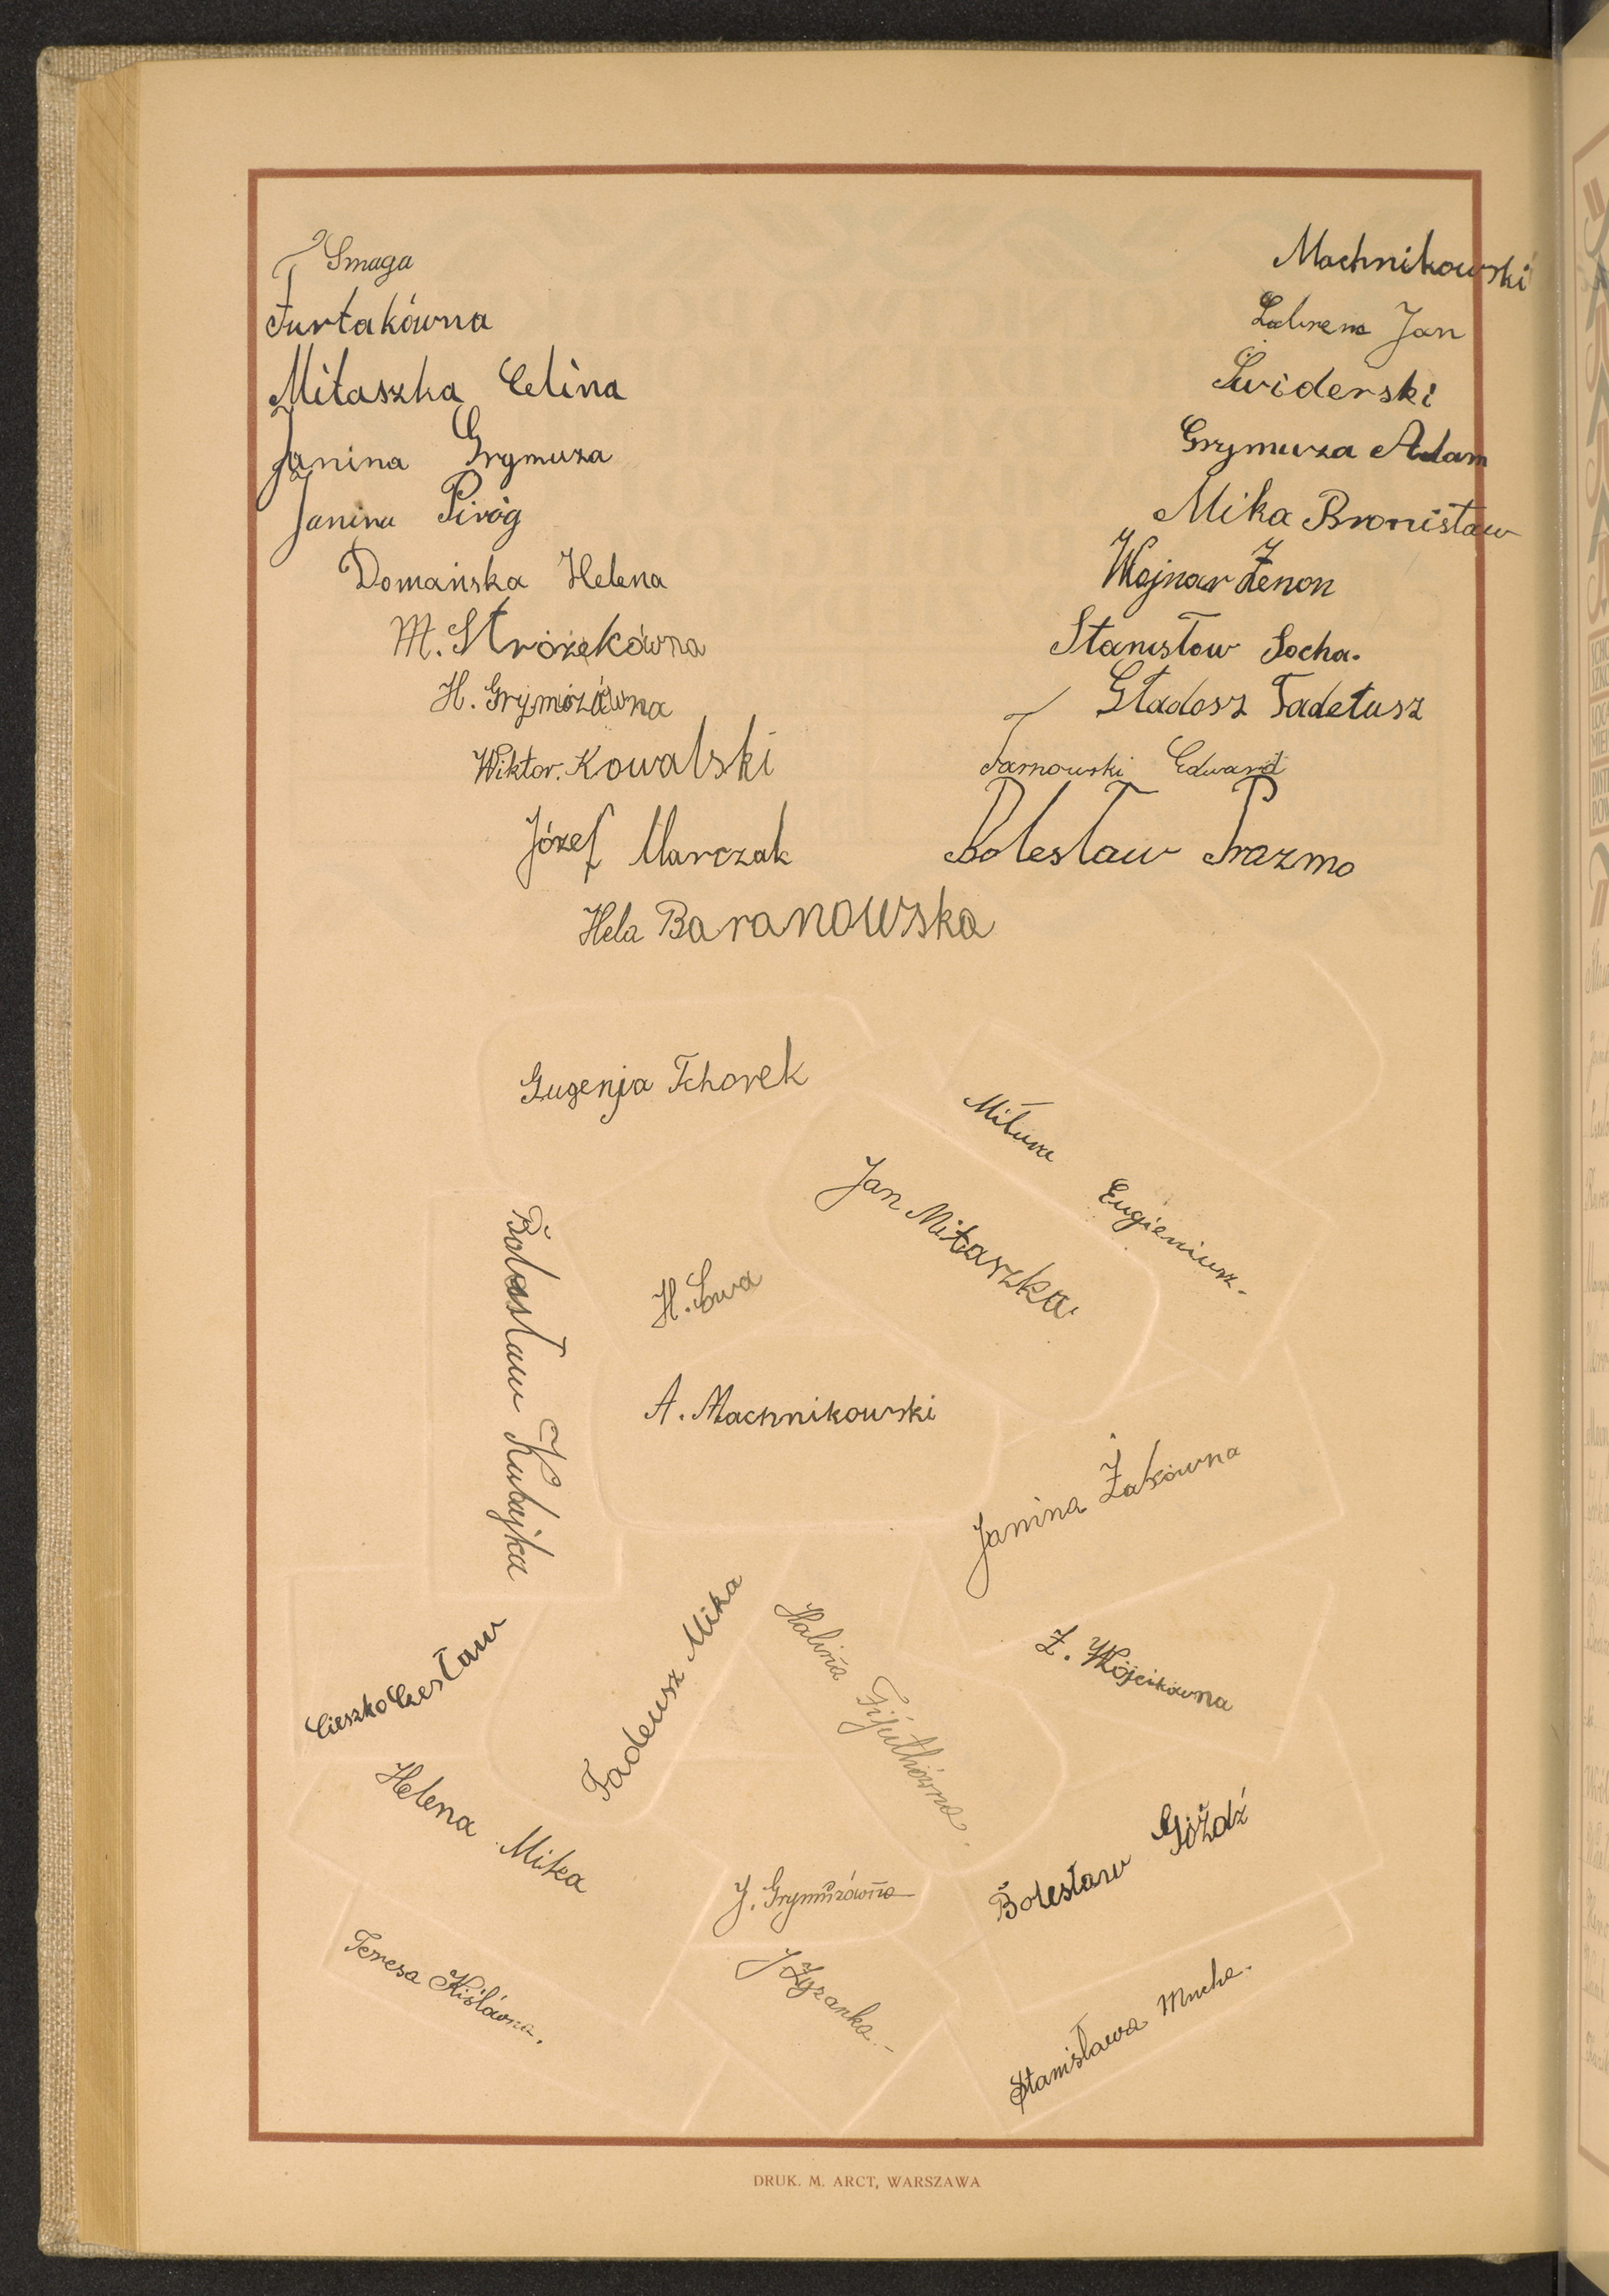 Smaga
Furtakówna
Mitaszka Celina
Janina Grymuza
Janina Piróg
Domańska Helena
M. Stróżekówna
H. Grymuzówna
Wiktor. Kowalski
Józef Marczak
Hela Baranowska
Machnikowski
Jan
Świderski
Grymuza Adam
Mika Bronisław
Wojnar Zenon
Stanisław Socha.
Gładosz Tadeusz
Tarnowski Edward
Bolesław Prazmo
Gugenja Tchorek
Miturа Eugieniusz.
Jan Mitaszka
H. Sowa
Bolesław Kubajka
A. Machnikowski
Janina Żakówna
Cieszko Czesław
Tadeusz Mika
Halina
Z. Wójcikówna
Helena Mika
J. Grymuzówna
Bolesław Góźdź
Teresa Kiślówna.
J Zyzanka.
Stanisława Mucha.
DRUK. M. ARCT, WARSZAWA